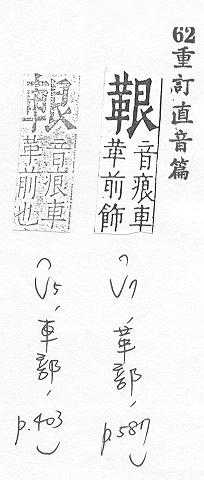 62重訂直音篇
鞎
音痕車
革前飾
(V7、革部、
p.587)
音痕車
革前也
(V5、車部、
p.403)